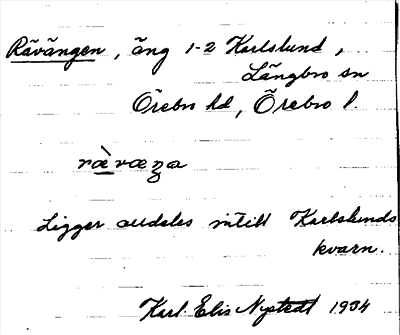 Rävängen, äng 1-2 Karlslund,
Längbro sn
Örebro hd, Örebro l.
ræ̀væŋa
Ligger alldeles intill Karlslunds
kvarn.
Karl Elis Nystedt 1934